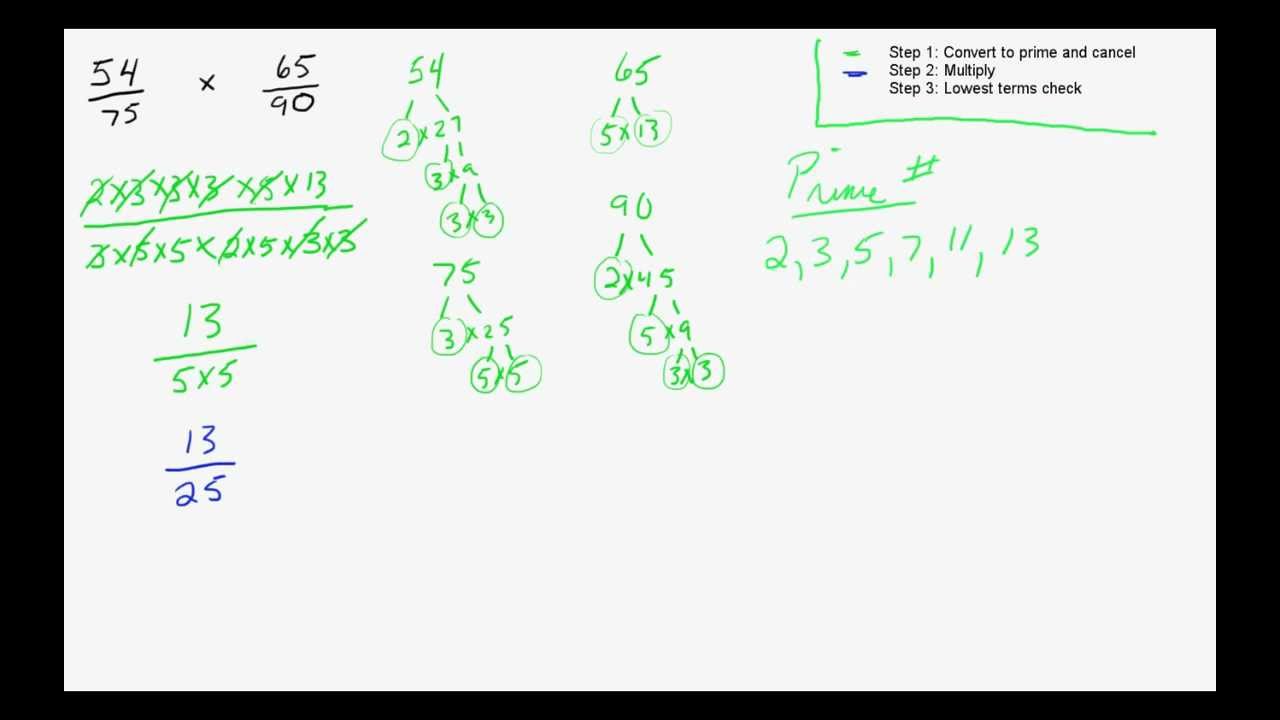 54/75 × 65/90
2×3×3×3×5×13
3×5×5×2×5×3×3
13
5×5
13
25
54
2×27
3×9
3×3
75
3×25
5×5
65
5×13
90
2×45
5×9
3×3
Step 1: Convert to prime and cancel
Step 2: Multiply
Step 3: Lowest terms check
Prime #
2,3,5,7,11,13